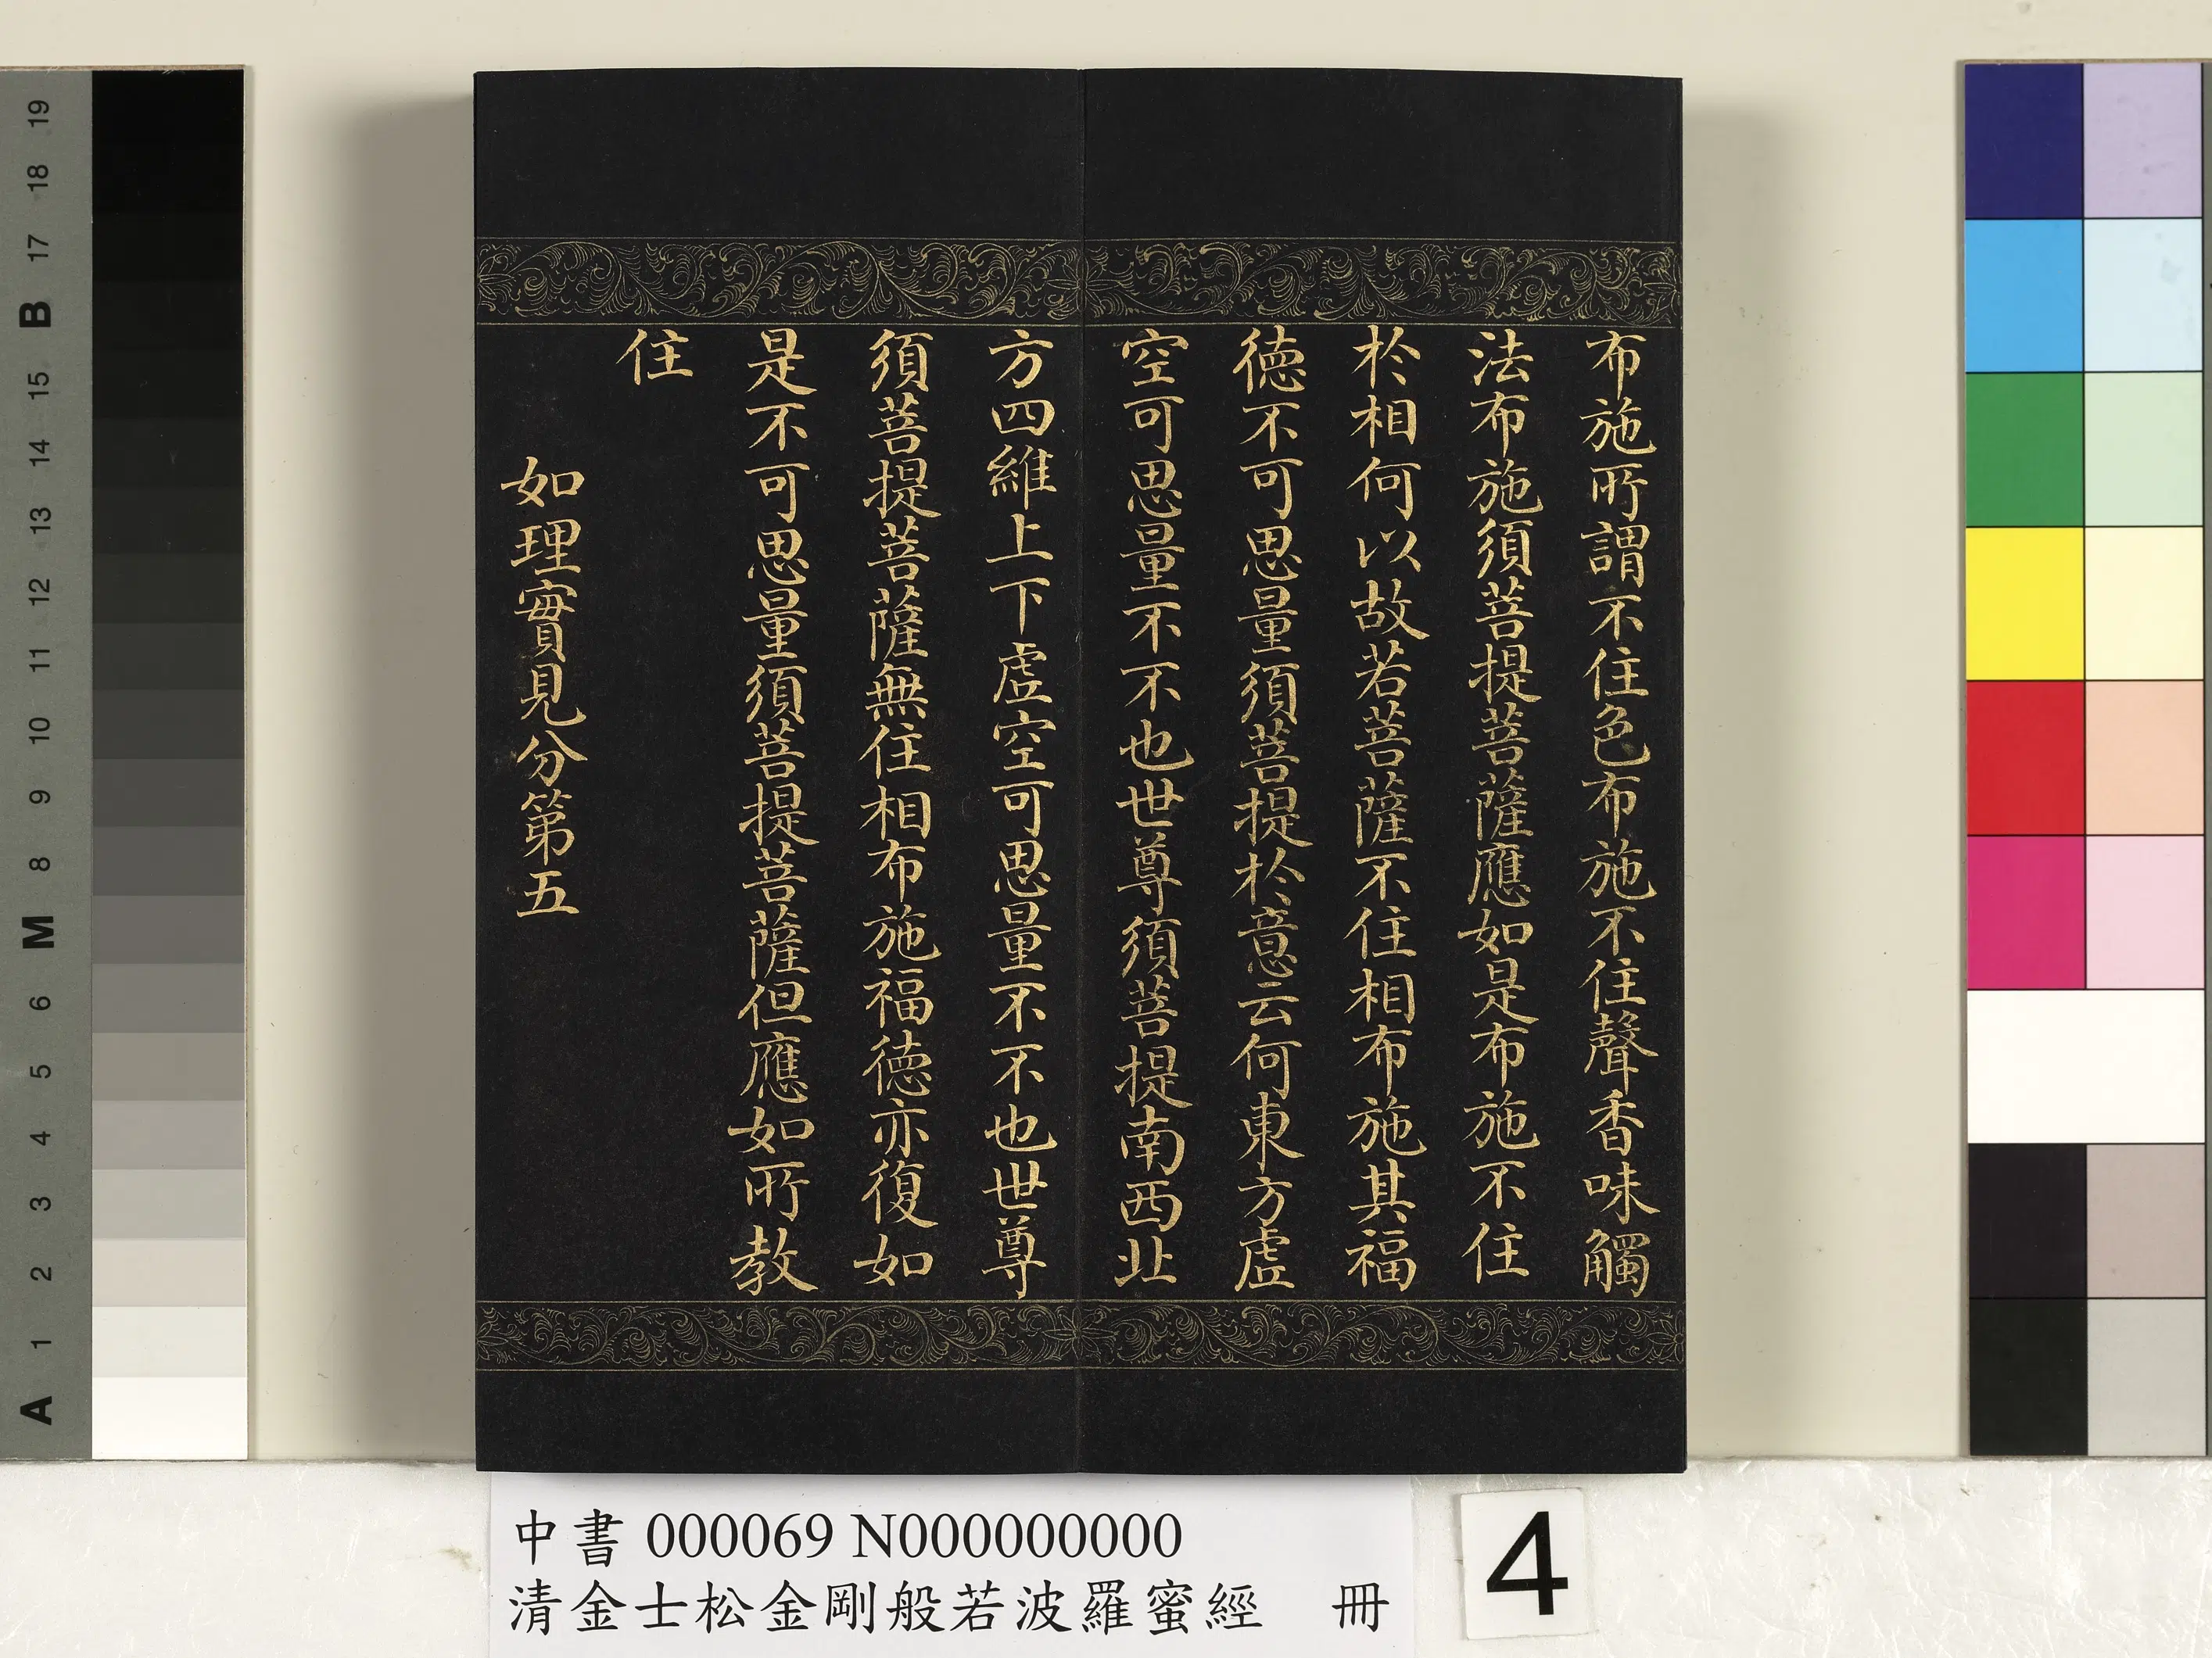 布施所謂不住色布施不住聲香味觸
法布施須菩提菩薩應如是布施不住
於相何以故若菩薩不住相布施其福
德不可思量須菩提於意云何東方虛
空可思量不不也世尊須菩提南西北
方四維上下虛空可思量不不也世尊
須菩提菩薩無住相布施福德亦復如
是不可思量須菩提菩薩但應如所教
住
如理實見分第五
中書 000069 N000000000
清金士松金剛般若波羅蜜經 冊
4
19
18
17
B
16
15
14
13
12
11
10
9
8
M
6
5
4
3
2
1
A